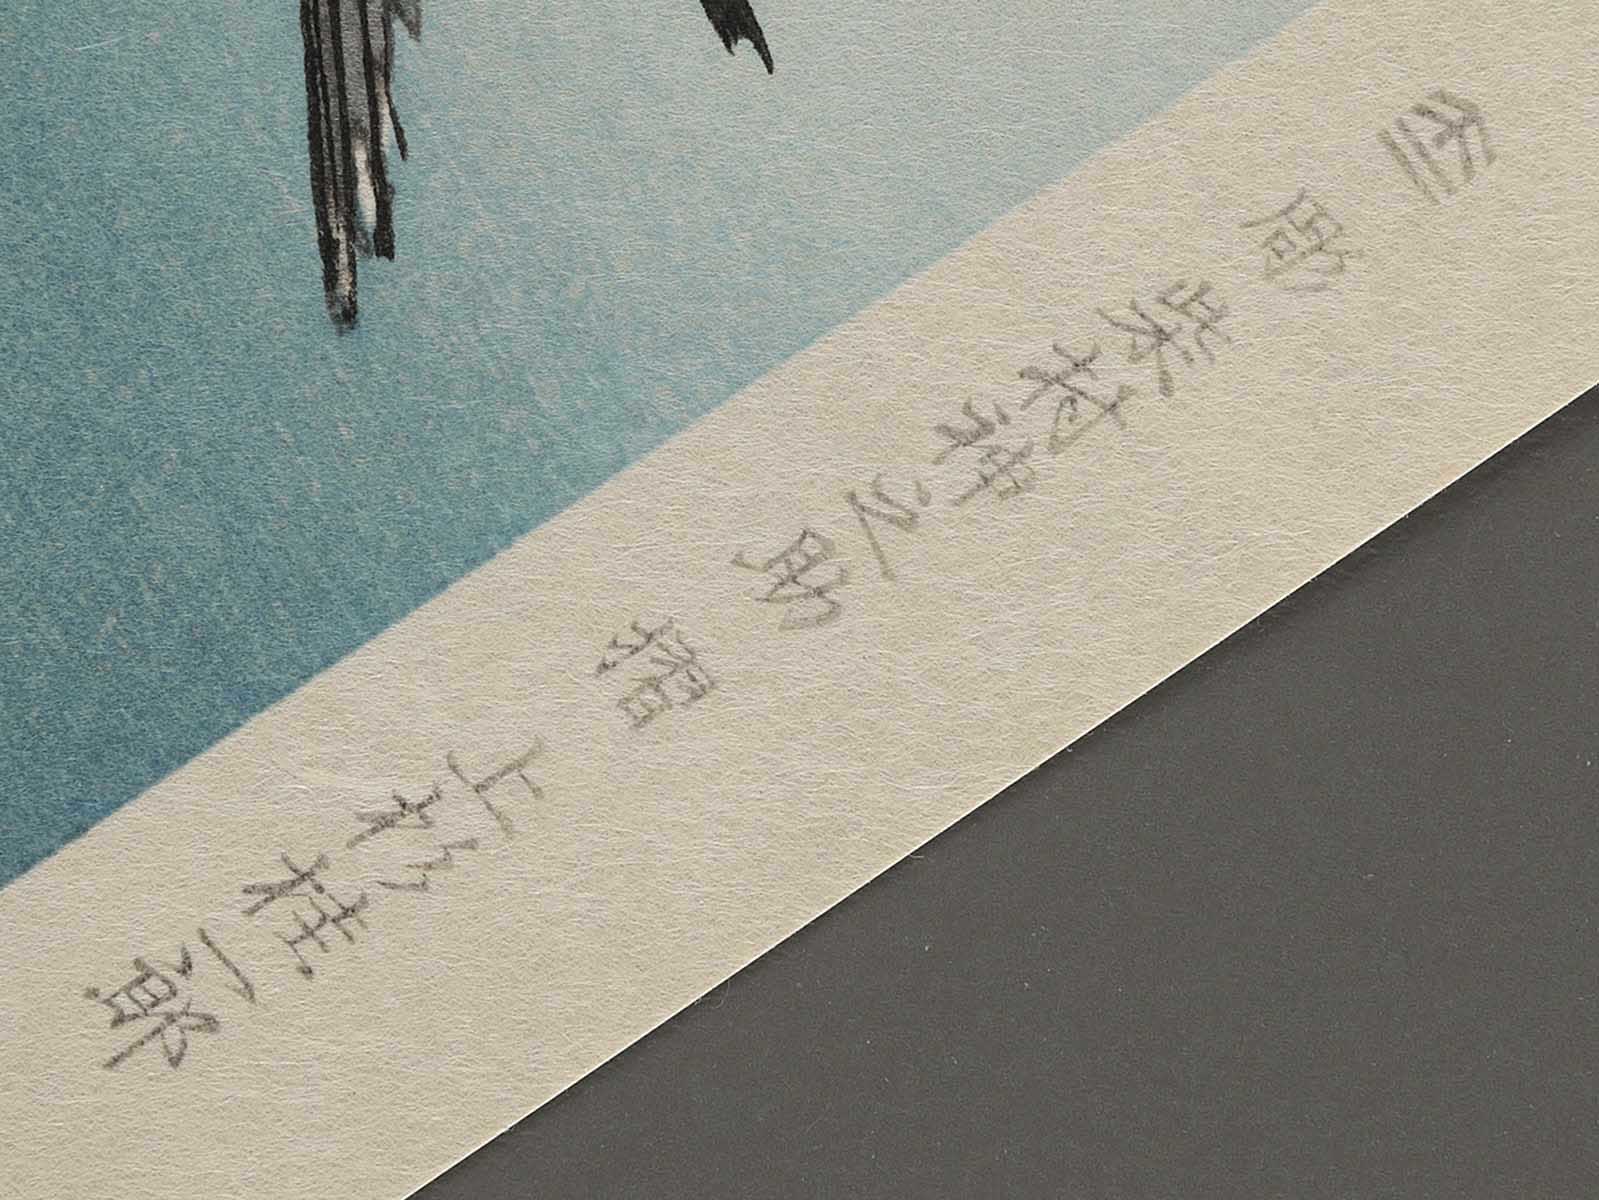 彫 柴村神之助 摺 上杉桂一郎